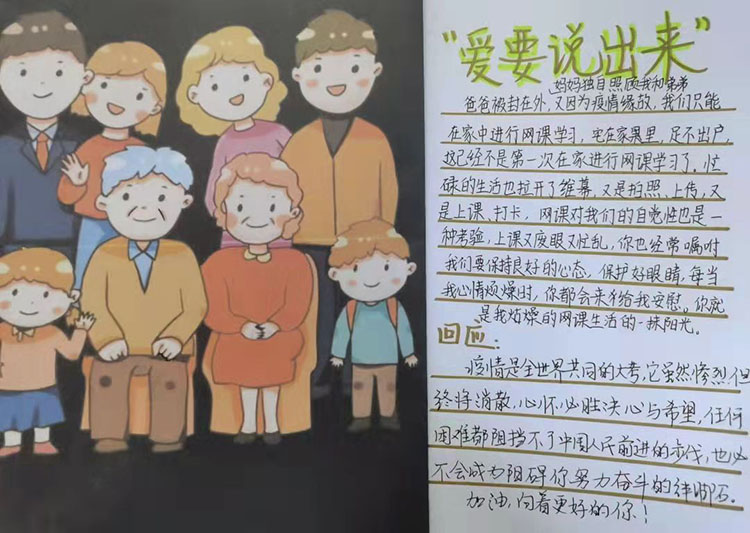 “爱要说出来”
妈妈独自照顾我和弟弟
爸爸被封在外，又因为疫情缘故，我们只能
在家中进行网课学习，宅在家里，足不出户，
这已经不是第一次在家进行网课学习了，忙
碌的生活也拉开了维幕，又是拍照、上传，又
是上课、打卡，网课对我们的自觉性也是一
种考验，上课又废眼又忙乱，你也经常嘱咐
我们要保持良好的心态，保护好眼睛，每当
我心情烦燥时，你都会来给我安慰。你就
是我烦燥的网课生活的一抹阳光。
回应.
疫情是全世界共同的大考，它虽然惨烈但
终将消散，心怀必胜决心与希望，任何
困难都阻挡不了中国人民前进的步伐，也必
不会成为阻碍你努力奋斗的绊脚石。
加油，向着更好的你！